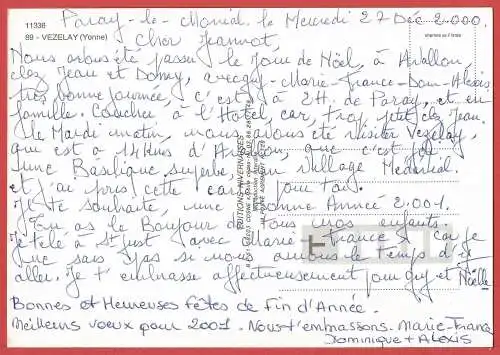 11336
89 - VEZELAY (Yonne)
Paray-le-Monial le Mercredi 27 Déc 2.000.
Cher Jeannot,
Nous avons été passer le jour de Nöel, à Avallon,
chez Jean et Domy, avec guy-Marie-France-Dom-Alexis
très bonne journée, c'est à 2H. de Paray, et en
famille. Coucher à l'Hotel car, trop petit chez Jean.
Le Mardi matin, nous avons été visiter Vezelay,
que est à 14 kms d'Avallon, que c'est joli
une Basilique superbe, un village Médiéval.
et j'ai pris cette carte pour toi.
Je te souhaite, une Bonne Année 2.001.
Tu as le Bonjour de tous mes enfants.
Je télé à St just, avec Marie-France, car je
ne sais pas si nous aurons le temps d'y
aller. Je t'embrasse affectueusement pour guy et Nöelle
Bonnes et Heureuses fêtes de Fin d'Année.
Meilleurs voeux pour 2001. Nous t'embrassons. Marie-France
Dominique + ALEXIS
EDITIONS NIVERNAISES